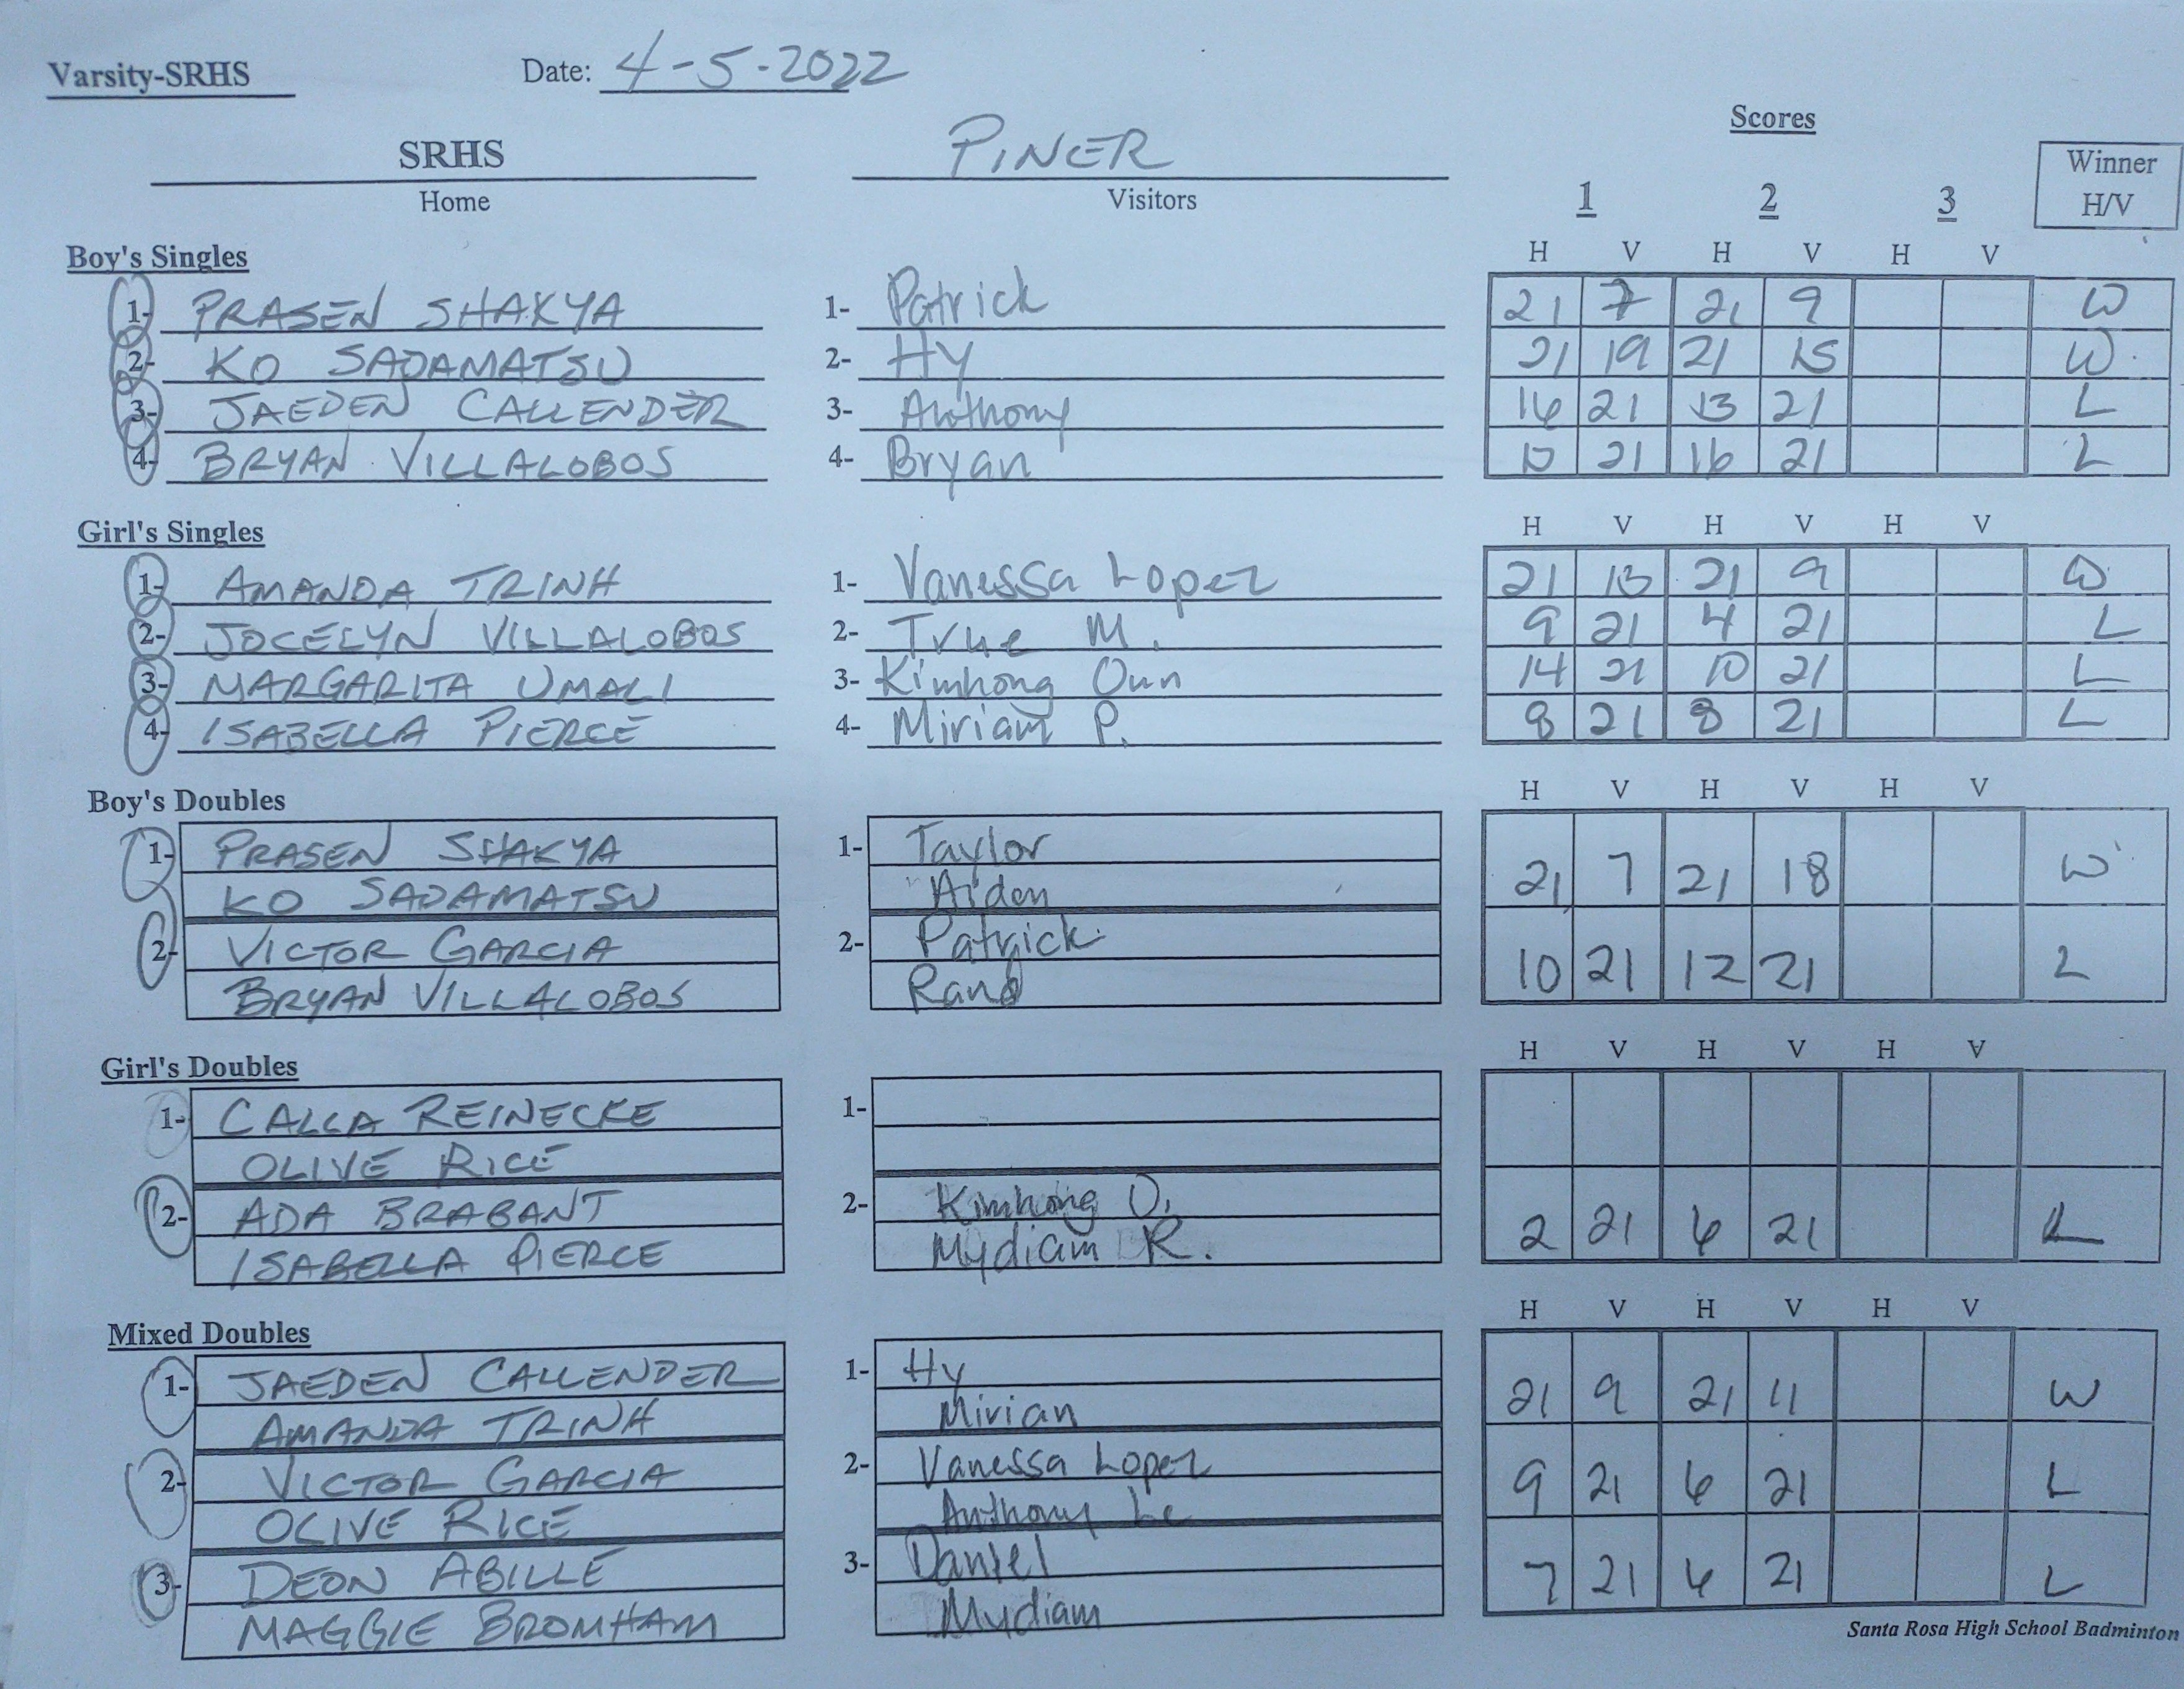 Varsity-SRHS Date: 4-5-2022
Scores
SRHS PINER Winner
Home Visitors 1 2 3 H/V
Boy's Singles H V H V H V
1- PRASEN SHAKYA 1- Patrick 21 7 21 9 W
2- KO SADAMATSU 2- Hy 21 19 21 15 W
3- JAEDEN CALLENDER 3- Anthony 21 13 21 L
4- BRYAN VILLALOBOS 4- Bryan 21 16 21 L
Girl's Singles H V H V H V
1- AMANDA TRINH 1- Vanessa Lopez 21 13 21 9 W
2- JOCELYN VILLALOBOS 2- True M. 9 21 4 21 L
3- MARGARITA UMALI 3- Kimhong Oun 14 21 10 21 L
4- ISABELLA PIERCE 4- Miriam P. 8 21 8 21 L
Boy's Doubles H V H V H V
1- PRASEN SHAKYA 1- Taylor
KO SADAMATSU Aiden 21 7 21 18 W
2- VICTOR GARCIA 2- Patrick
BRYAN VILLALOBOS 10 21 12 21 L
Girl's Doubles H V H V H V
1- CALLA REINECKE 1-
OLIVE RICE
2- ADA BRABANT 2- Kimhong O.
ISABELLA PIERCE Mydiam R. 2 21 6 21 L
Mixed Doubles H V H V H V
1- JAEDEN CALLENDER 1- Hy
AMANDA TRINH Mirian 21 9 21 11 W
2- VICTOR GARCIA 2- Vanessa Lopez
OLIVE RICE Anthony Le 9 21 6 21 L
3- DEON ABILLE 3- Daniel
MAGGIE BROMHAM Mydiam 7 21 6 21 L
Santa Rosa High School Badminton